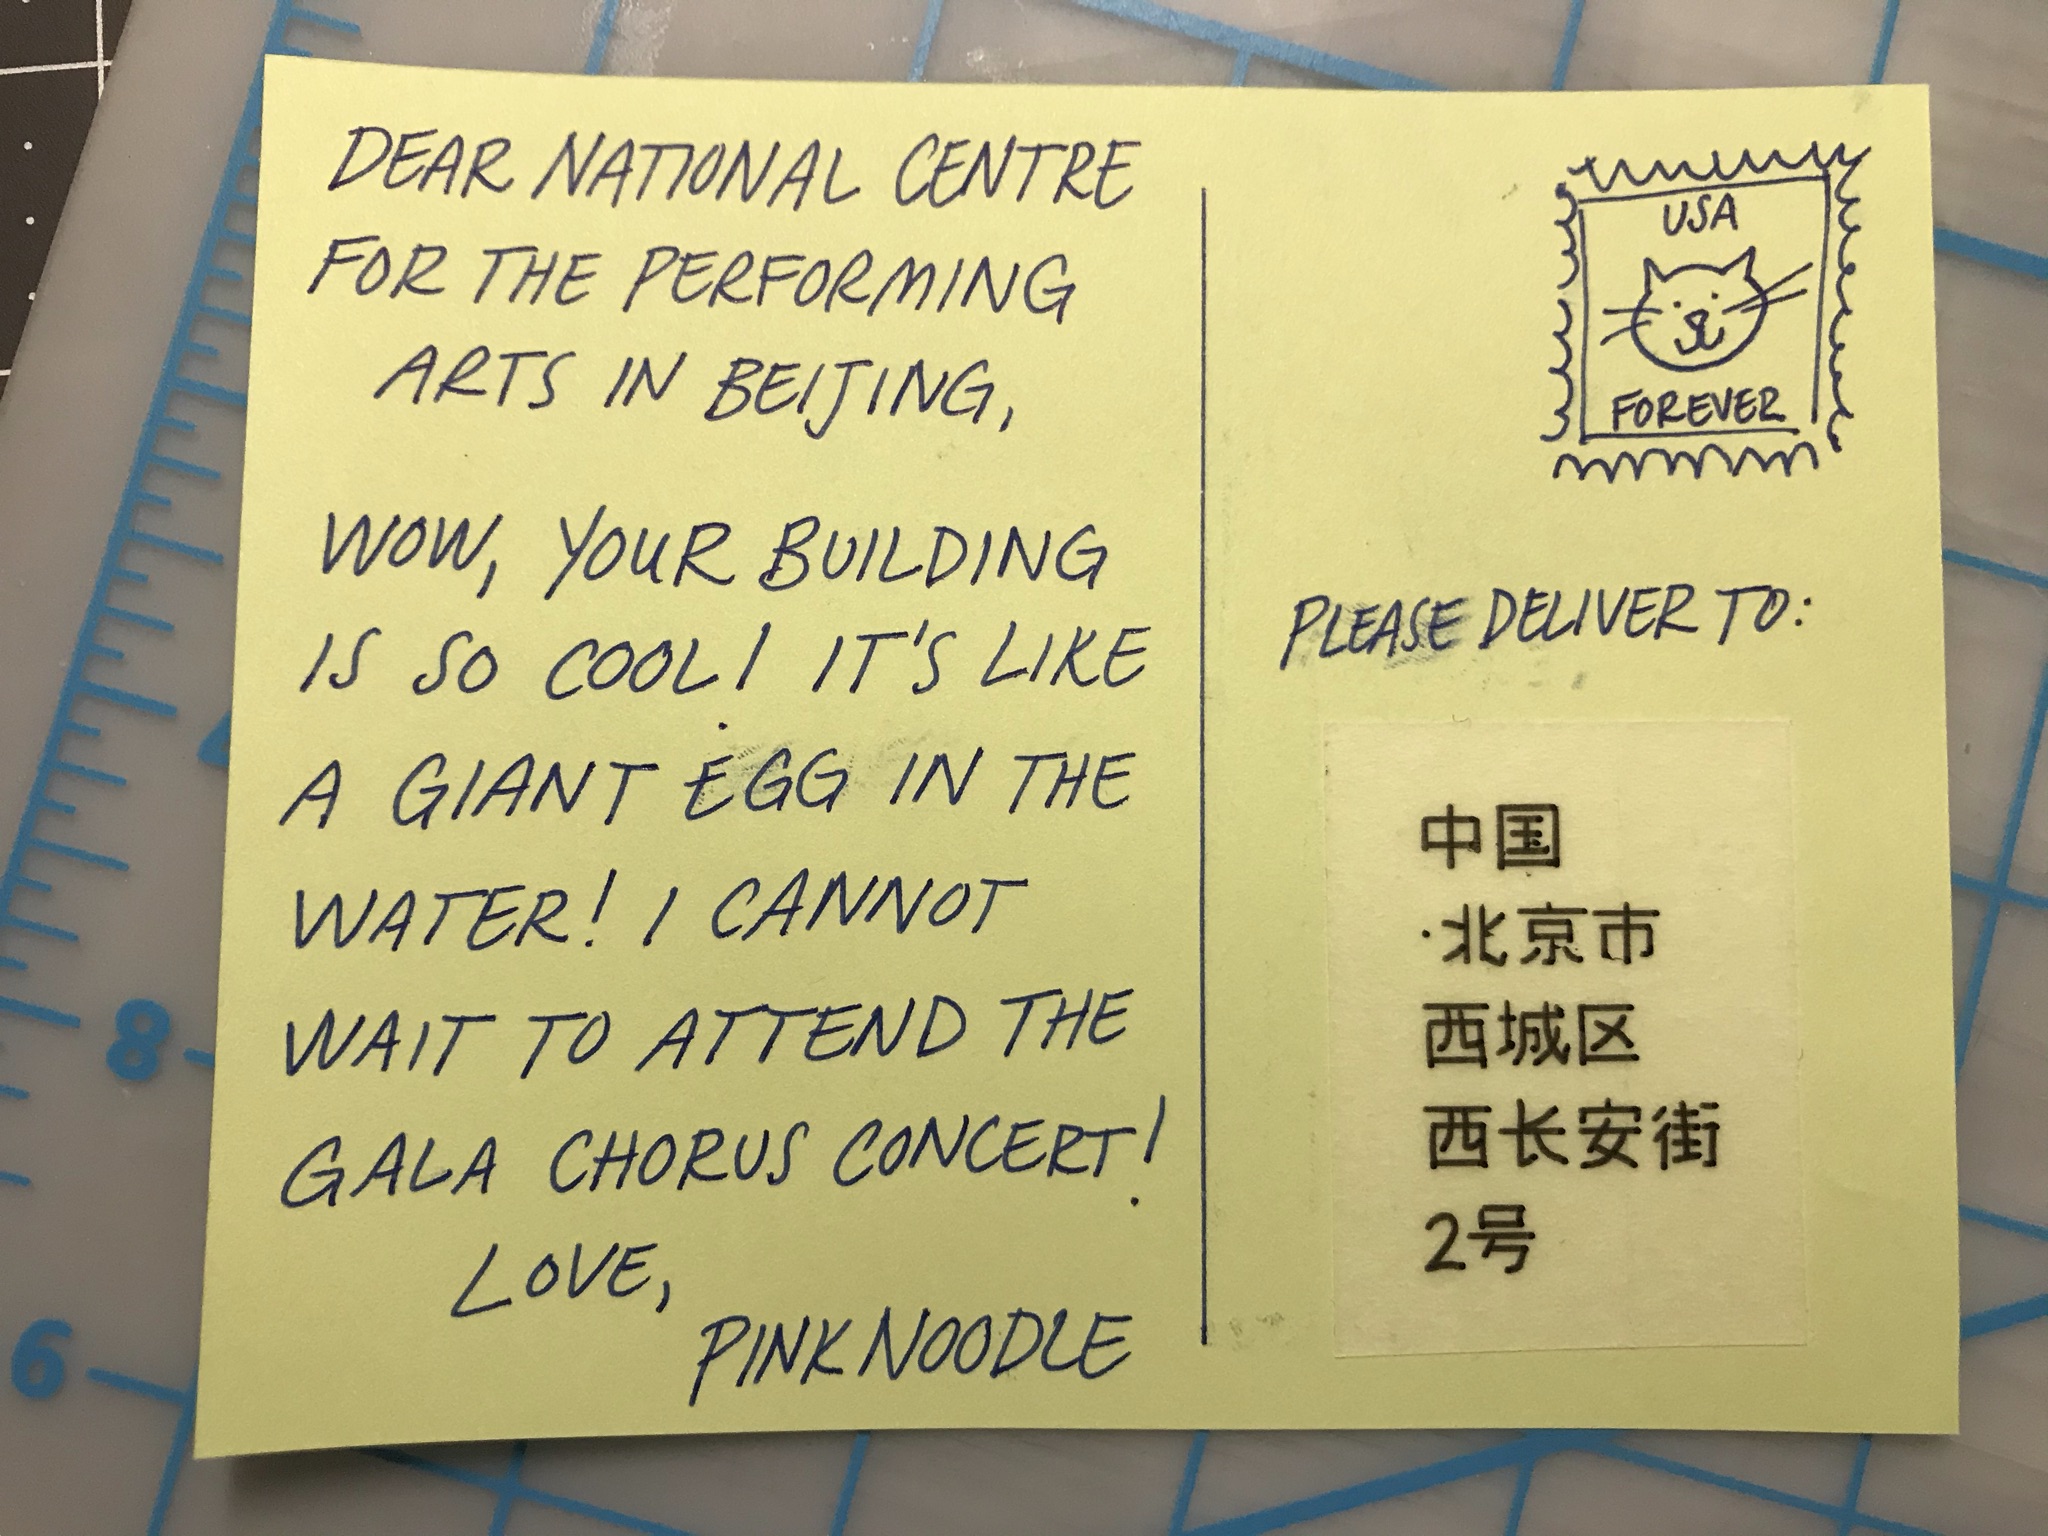 DEAR NATIONAL CENTRE
FOR THE PERFORMING
ARTS IN BEIJING,
WOW, YOUR BUILDING
IS SO COOL! IT'S LIKE
A GIANT EGG IN THE
WATER! I CANNOT
WAIT TO ATTEND THE
GALA CHORUS CONCERT!
LOVE,
PINK NOODLE
USA
FOREVER
PLEASE DELIVER TO:
中国
·北京市
西城区
西长安街
2号
8
6